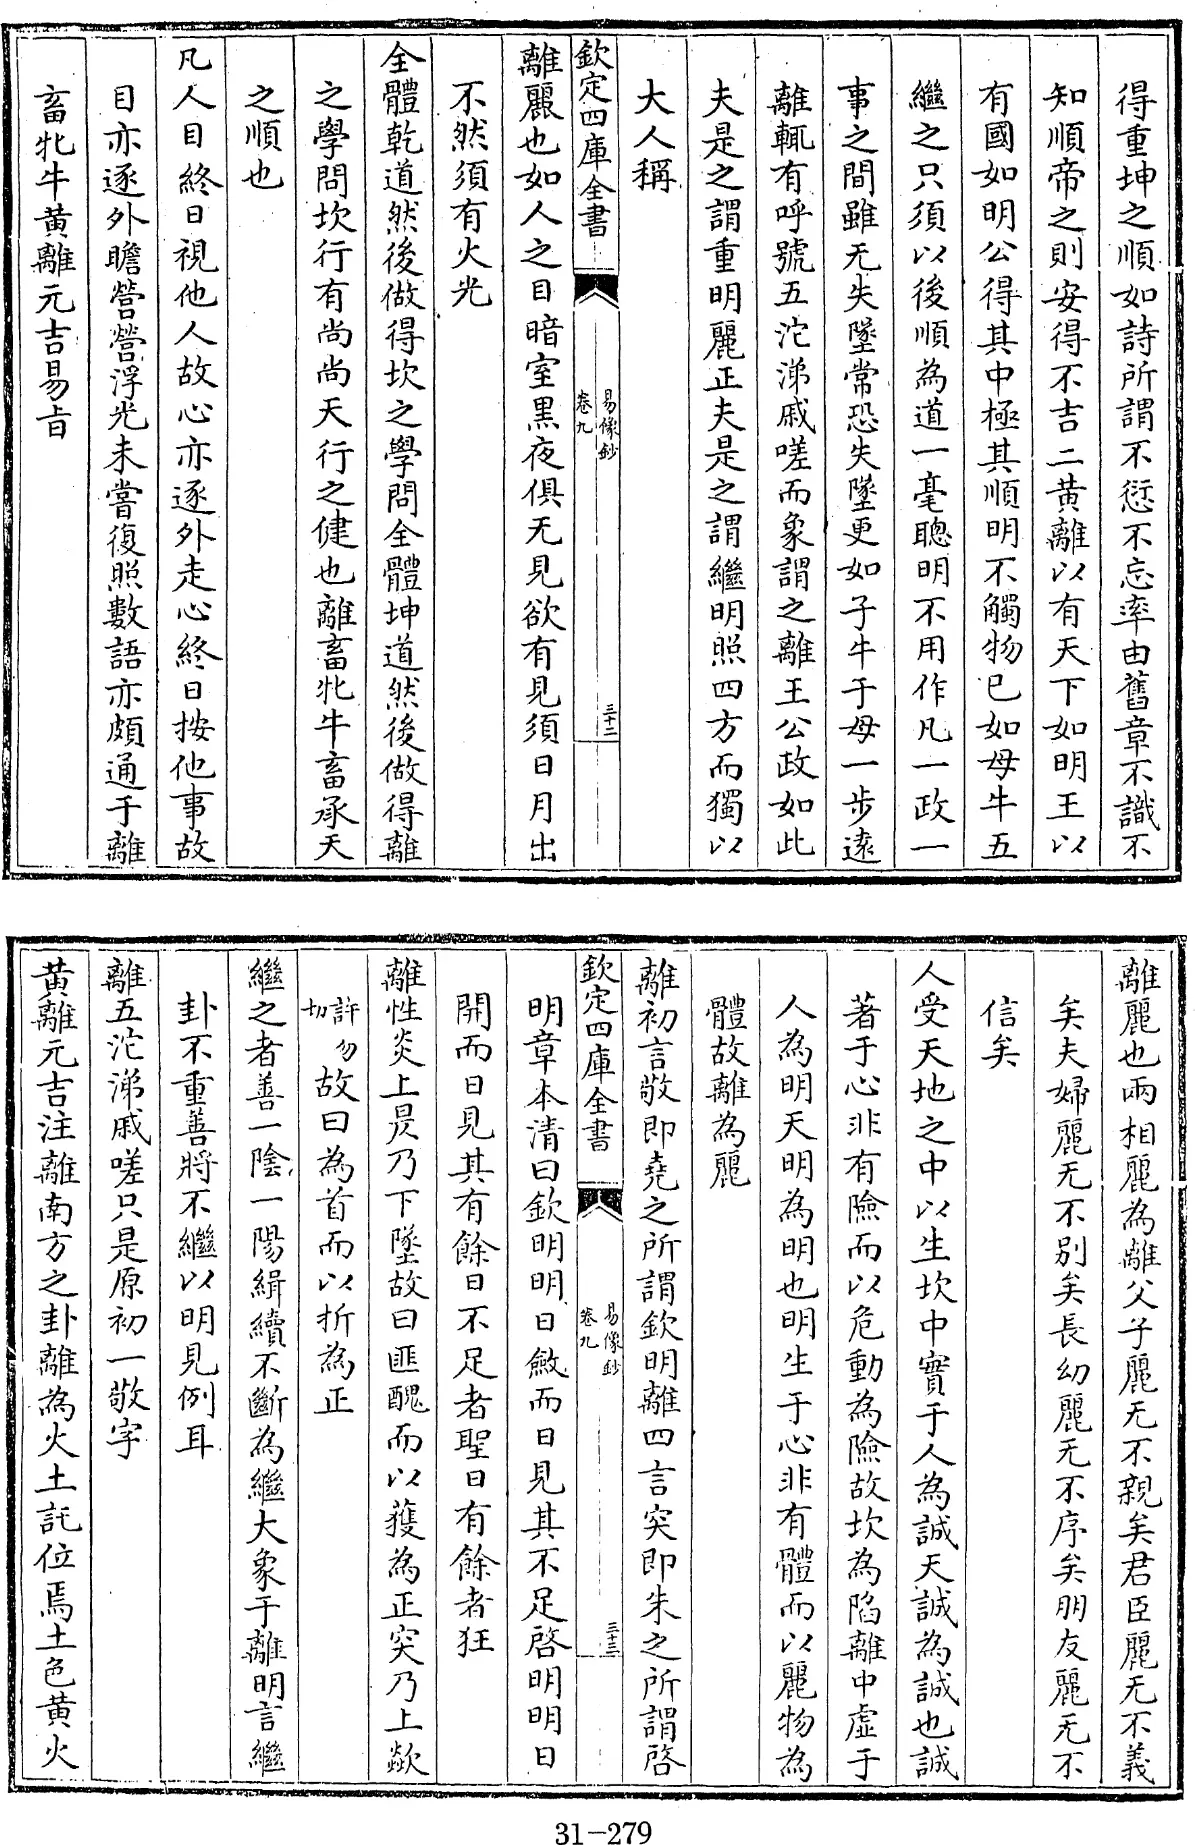 得重坤之順如詩所謂不愆不忘率由舊章不識不
知順帝之則安得不吉二黄離以有天下如明王以
有國如明公得其中極其順明不觸物已如母牛五
繼之只須以後順為道一毫聰明不用作凡一政一
事之間雖无失墜常恐失墜更如子牛于母一步逺
離輒有呼號五沱涕戚嗟而象謂之離王公政如此
夫是之謂重明麗正夫是之謂繼明照四方而獨以
大人稱
欽定四庫全書
易像鈔
卷九
三十二
離麗也如人之目暗室黒夜俱无見欲有見須日月出
不然須有火光
全體乾道然後做得坎之學問全體坤道然後做得離
之學問坎行有尚尚天行之健也離畜牝牛畜承天
之順也
凡人目終日視他人故心亦逐外走心終日按他事故
目亦逐外瞻營營浮光未嘗復照數語亦頗通于離
畜牝牛黄離元吉易㫖
離麗也兩相麗為離父子麗无不親矣君臣麗无不義
矣夫婦麗无不别矣長幼麗无不序矣朋友麗无不
信矣
人受天地之中以生坎中實于人為誠天誠為誠也誠
著于心非有險而以危動為險故坎為陷離中虚于
人為明天明為明也明生于心非有體而以麗物為
體故離為麗
離初言敬即堯之所謂欽明離四言突即朱之所謂啓
欽定四庫全書
易像鈔
卷九
三十三
明章本清曰欽明明日斂而日見其不足啓明明日
開而日見其有餘日不足者聖日有餘者狂
離性炎上昃乃下墜故曰匪醜而以獲為正突乃上歘
許勿切故曰為首而以折為正
繼之者善一陰一陽緝續不斷為繼大象于離明言繼
卦不重善將不繼以明見例耳
離五沱涕戚嗟只是原初一敬字
黄離元吉注離南方之卦離為火土託位焉土色黄火
31-279